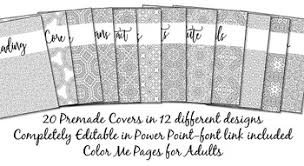 ading
Core
ans
art
s
ute
ds
20 Premade Covers in 12 different designs
Completely Editable in Power Point-font link included
Color Me Pages for Adults